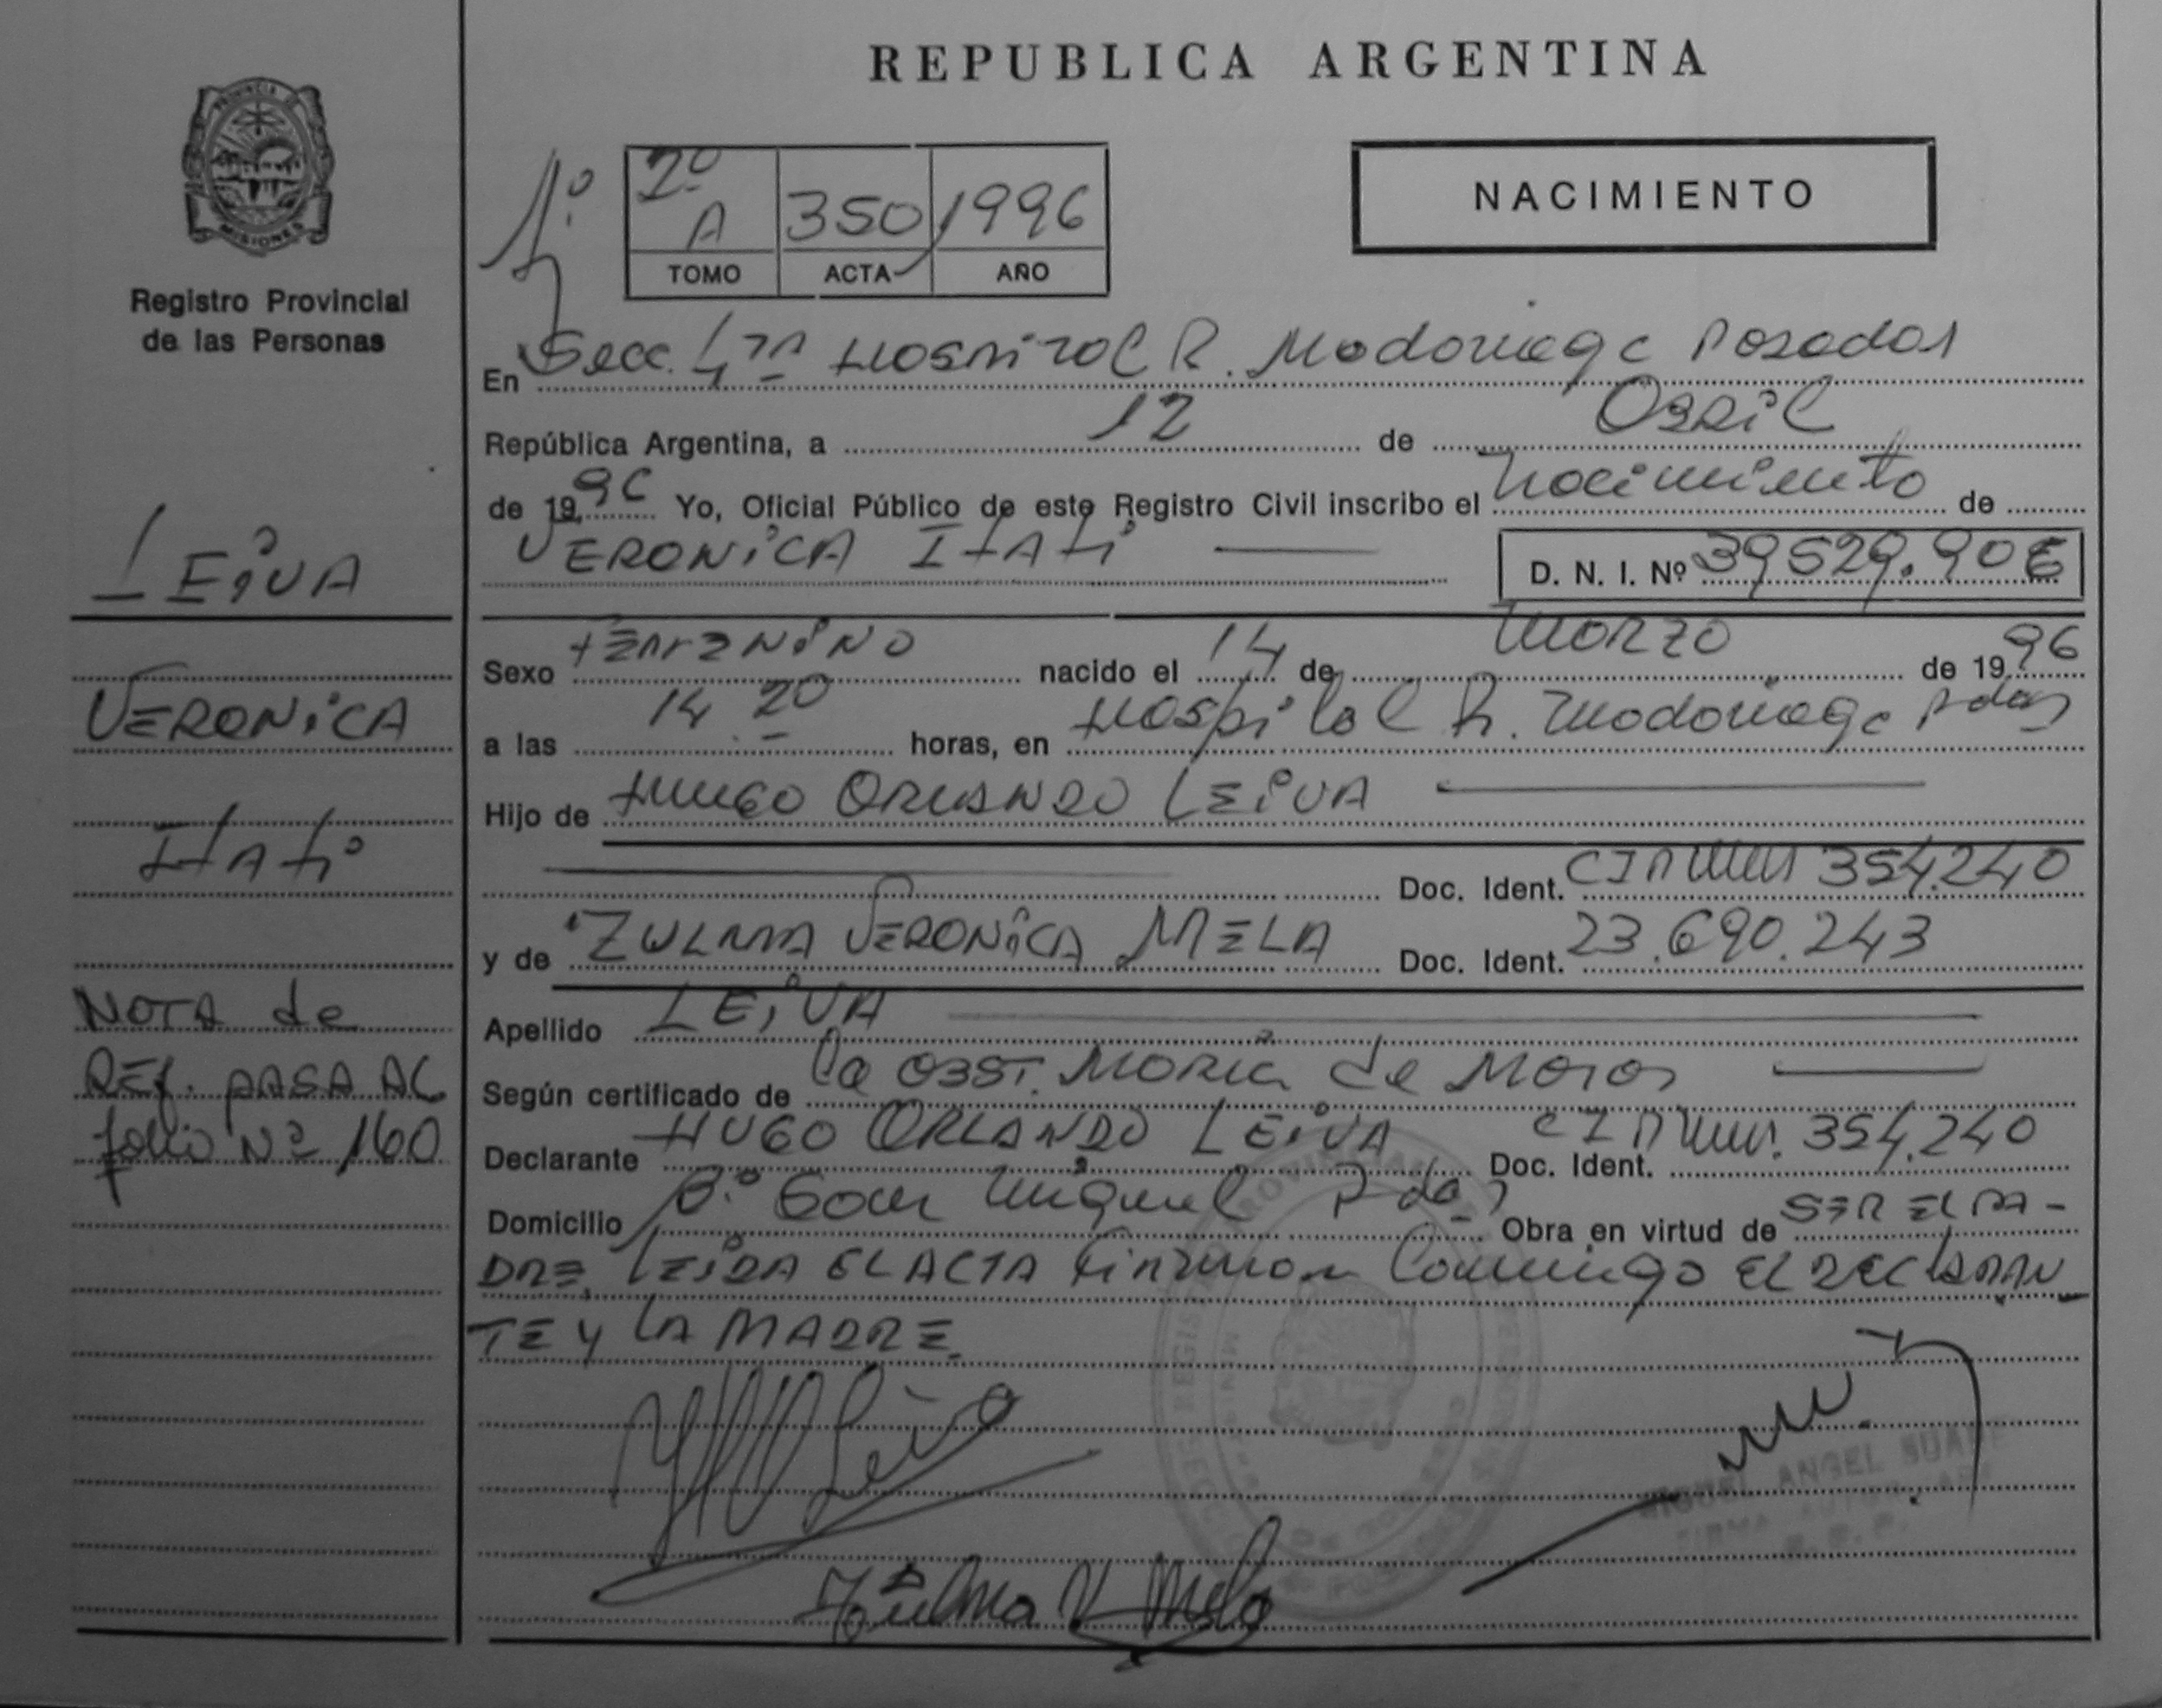 REPUBLICA ARGENTINA
PROVINCIA DE
MISIONES
Registro Provincial
de las Personas
NACIMIENTO
2º
A 350 1996
TOMO ACTA AÑO
En Secc. 4ta Hospital R. Madariaga Posadas
República Argentina, a 12 de Abril
de 1996 Yo, Oficial Público de este Registro Civil inscribo el nacimiento de
VERONICA ITATI
D. N. I. Nº 39529.906
LEIVA
VERONICA
ITATI
NOTA de
REF. PASA AL
folio Nº 160
Sexo FEMENINO nacido el 14 de Marzo de 1996
a las 14 20 horas, en Hospital R. Madariaga Pdas
Hijo de HUGO ORLANDO LEIVA
Doc. Ident. 354.240
y de ZULMA VERONICA MELA Doc. Ident. 23.690.243
Apellido LEIVA
Según certificado de la OBST. Maria de
Declarante HUGO ORLANDO LEIVA Doc. Ident. 354.240
Domicilio Bº Miguel Pdas Obra en virtud de SER EL PA-
DRE, LEIDA EL ACTA firman Conmigo EL DECLARAN
TE Y LA MADRE.
MIGUEL ANGEL
FIRMA